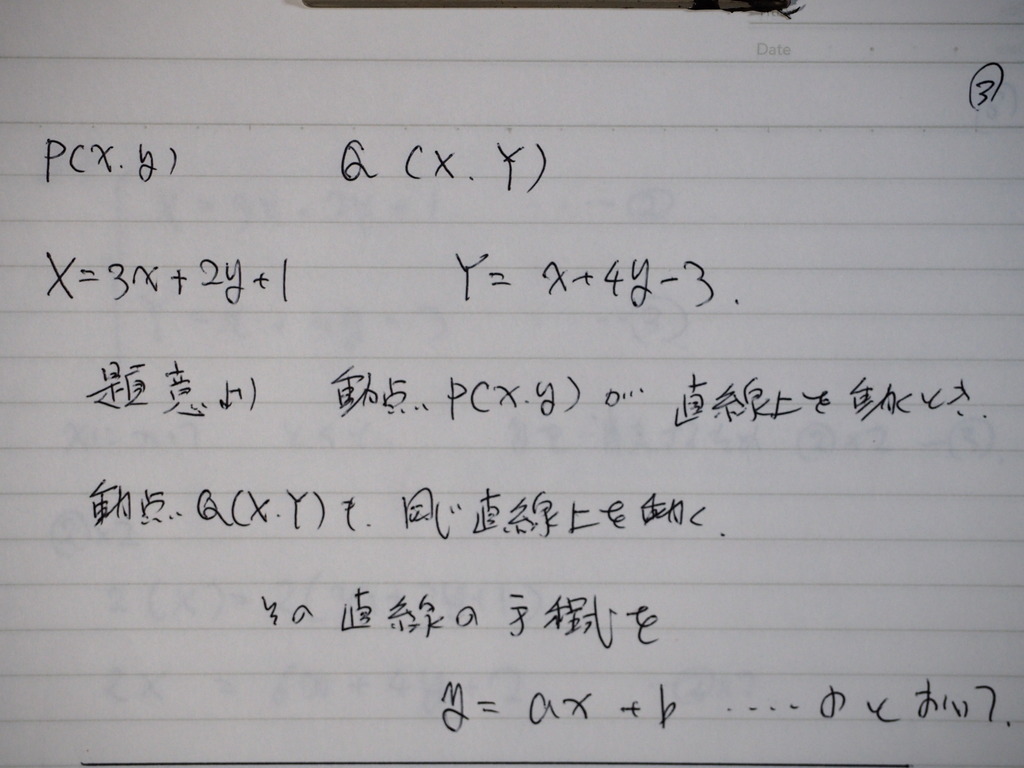 Date
③
P(x.y) Q(X.Y)
X=3x+2y+1 Y=x+4y-3.
題意より 動点P(x.y)が 直線上を動くとき.
動点Q(X.Y)も. 同じ直線上を動く.
その直線の方程式を
y=ax+b ・・・・・ とおいて.